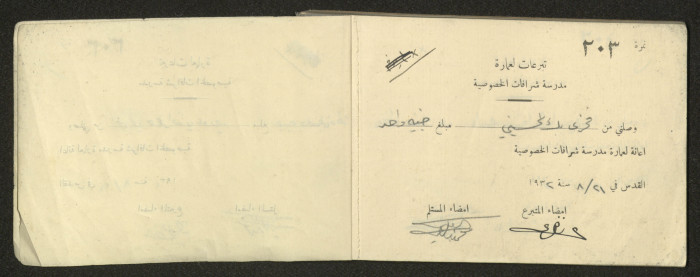 نمرة ٢٠٣
تبرعات لعمارة
مدرسة شرافات الخصوصية
وصلني من فخري بك الحسيني مبلغ جنيه واحد
اعانة لعمارة مدرسة شرافات الخصوصية
القدس في ٨/٢١ سنة ١٩٣٢
امضاء المتبرع امضاء المستلم